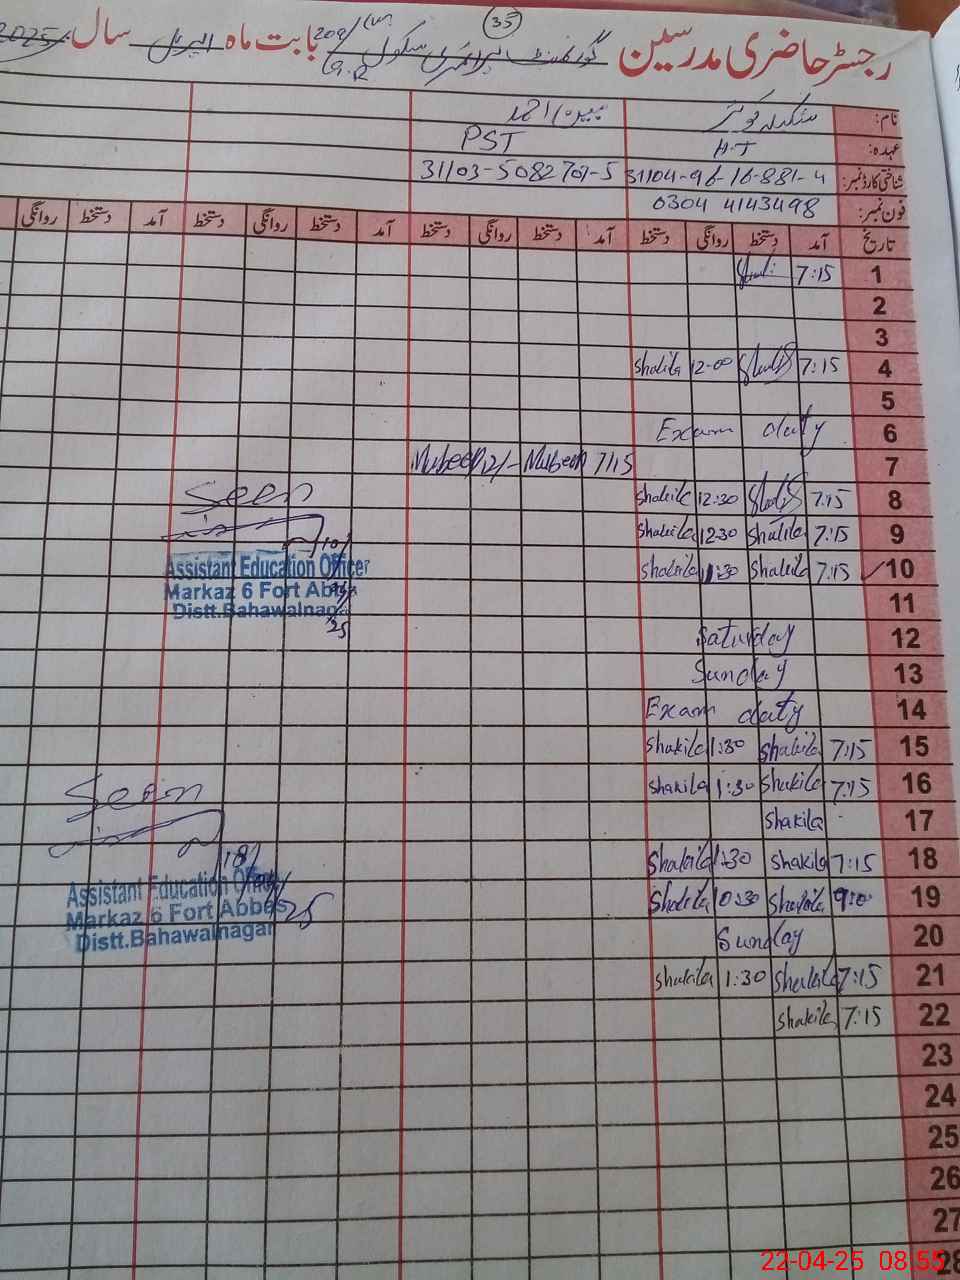 35
رجسٹر حاضری مدرسین گورنمنٹ پرائمری سکول 209/ بابت ماہ اپریل سال 2025
9.R
نام:
عہدہ: H.T PST
شناختی کارڈ نمبر: 31104-96-16-881-4 31103-5082701-5
فون نمبر: 0304 4143498
تاریخ آمد دستخط روانگی دستخط آمد دستخط روانگی دستخط آمد دستخط روانگی دستخط آمد دستخط روانگی
1 7:15
2
3
4 7:15 12-00 Shakila
5
6 Exam duty
7 7/15 Mubeen 12/- Mubeen
8 7:15 12:30 Shakila
9 7:15 Shakila 12:30 Shakila
10 7:15 Shakila 11:30 Shakila
11
12 Saturday
13 Sunday
14 Exam duty
15 7:15 Shakila 1:30 Shakila
16 7:15 Shakila 1:30 Shakila
17 Shakila
18 7:15 Shakila 1:30 Shakila
19 9:0 Shakila 10:30 Shakila
20 Sunday
21 7:15 Shakila 1:30 Shakila
22 7:15 Shakila
23
24
25
26
27
28
Seen
10/
Assistant Education Officer
Markaz 6 Fort Abbas
Distt.Bahawalnagar
25
Seen
18/
Assistant Education Officer
Markaz 6 Fort Abbas
Distt.Bahawalnagar
25
22-04-25 08:55